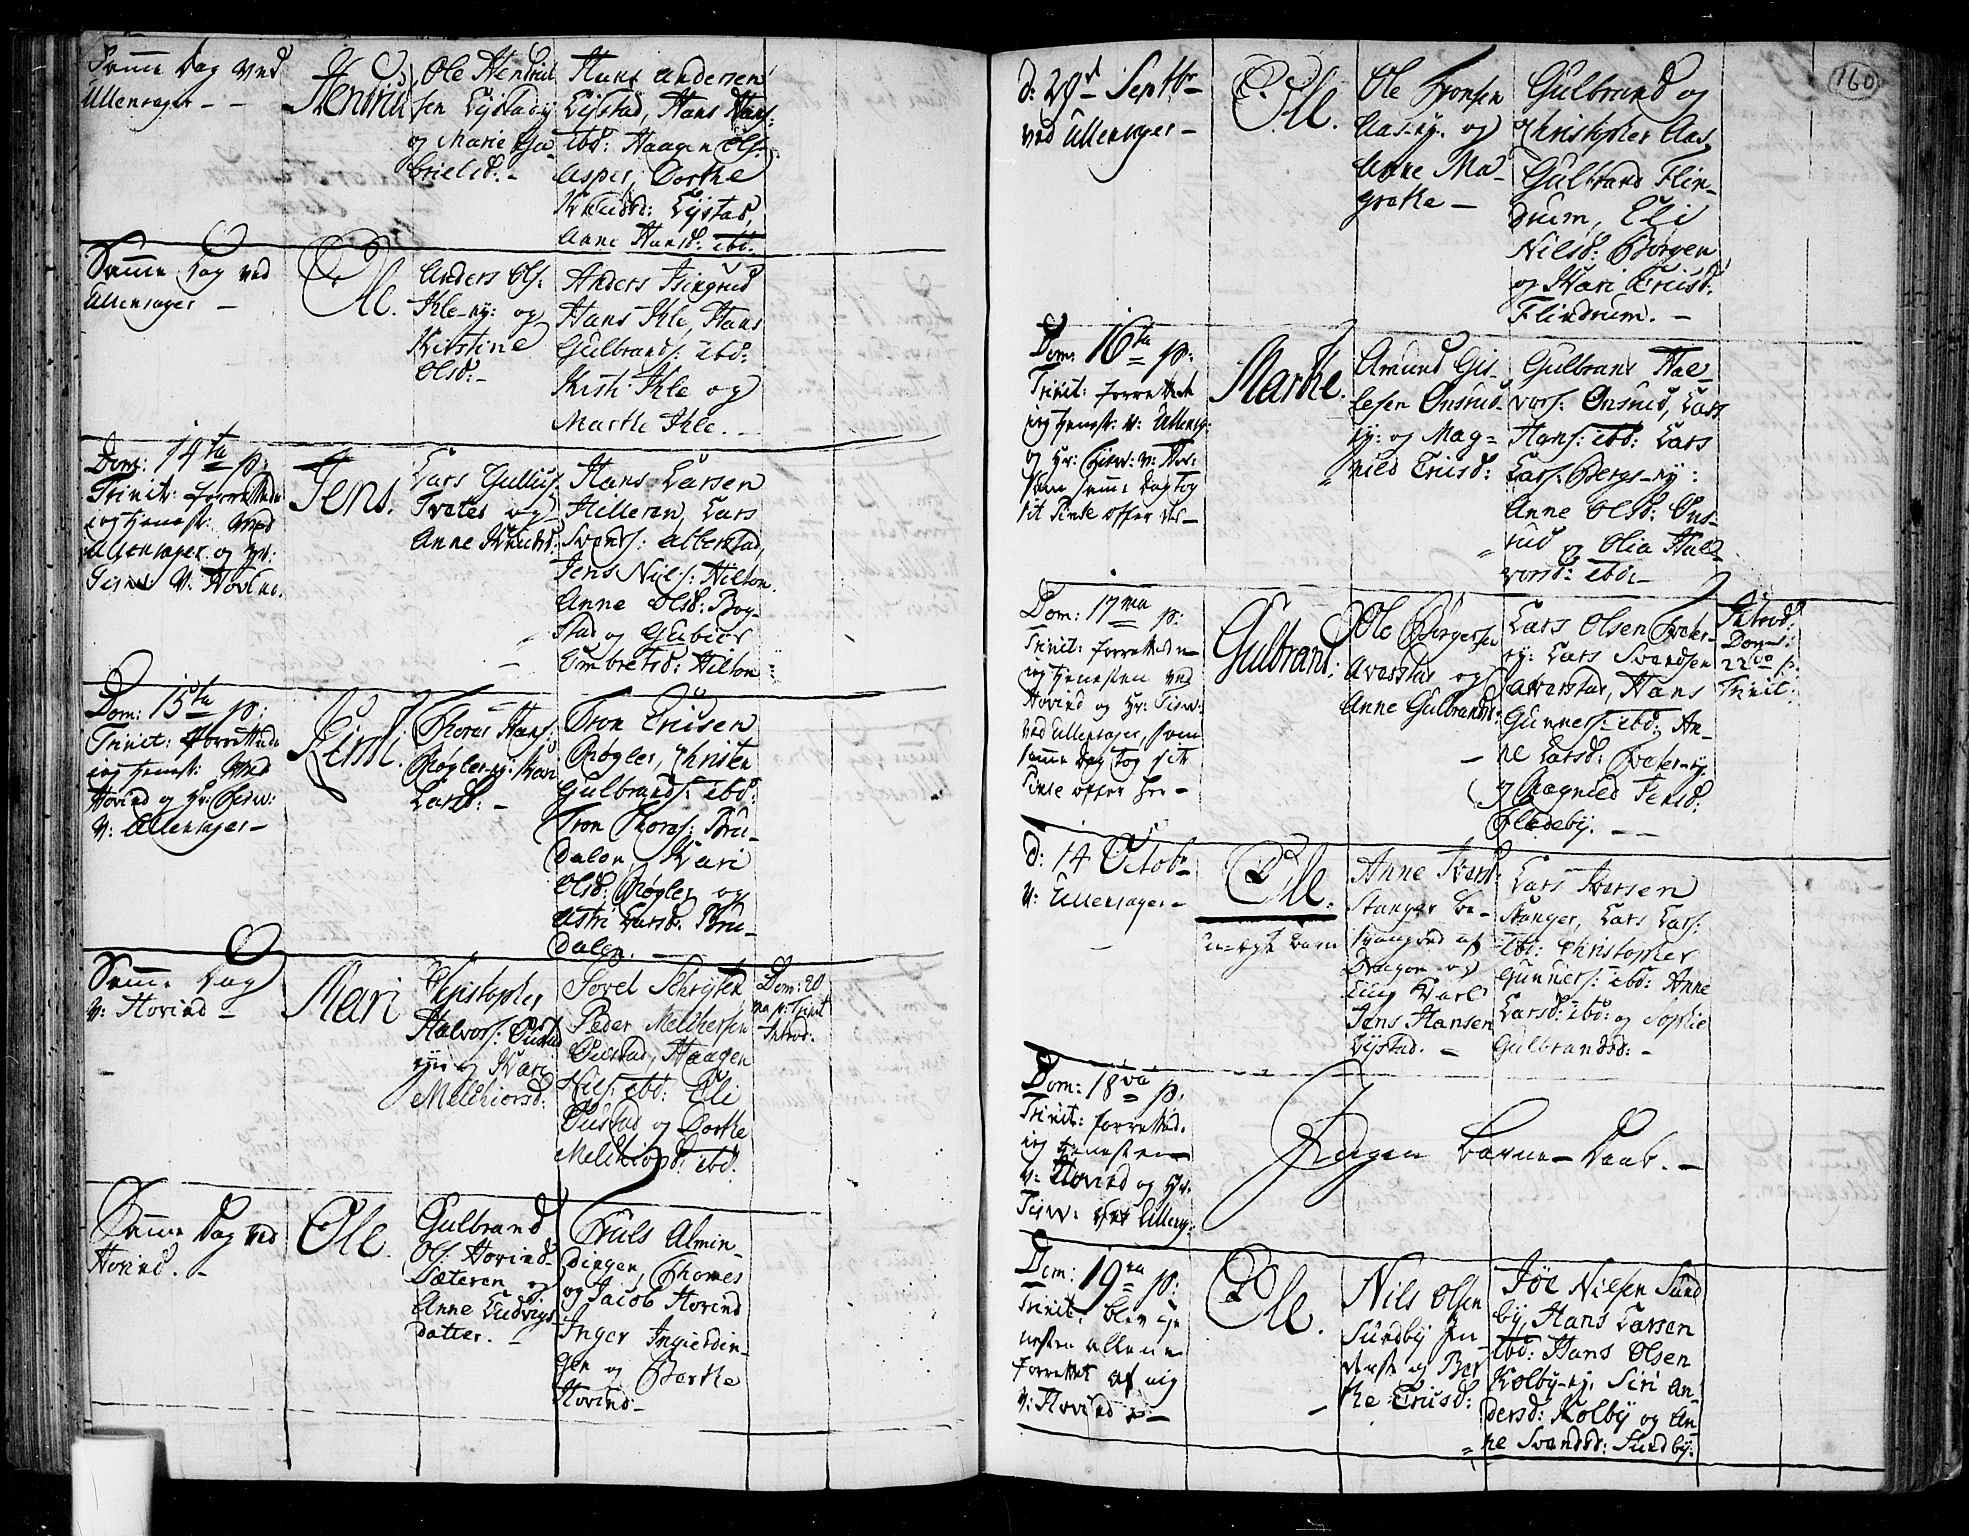 Samme Dag ved
Ullensager - -
Hendric
Ole Hendric
sen Lÿstad
og Marie Ga
brielsd: -
Hans Andersen
Lÿstad, Hans Hans:
ibd: Haagen Ols:
Asper, Dorthe
Knudsd: Lÿstad,
Anne Hansd: ibd:
Samme Dag ved
Ullensager -
Ole.
Anders Ols:
Ihle-ey: og
Kirstine
Olsd: -
Anders Isingrud
Hans Ihle, Hans
Gulbrands: ibd:
Kirsti Ihle og
Marthe Ihle. -
Dom: 14ta p:
Trinit: forrettede
ieg tienest: ved
Ullensager og Hr:
V: Hovind.
Jens.
Lars Gullics:
Tveter og
Anne Knudsd:
Hans Larsen
Hilleren, Lars
Svends: Alberstad,
Jens Nils: Hilton
Anne Olsd: Bog-
stad og Gubiør
Embretsd: Hilton
Dom: 15ta p:
Trinit: forrettede
ieg tienest: ved
Hovind og Hr:
V: Ullensager -
Kirsti.
Thores Hans:
Røgler-ey: Kari
Larsd: -
Tron Ericsen
Røgler, Christen
Gulbrands: ibd:
Tron Thores: Bru-
dalen, Kari
Olsd: Røgler og
Astri Larsd: Bru-
dalen. -
Samme Dag
V: Hovind -
Mari
Christopher
Halvors:
og Kari
Melchiorsd:
Povel
Peder Melchersen
Haagen
Nils: ibd: Eli
og Dorthe
Melchiorsd: ibd:
Dom: 20
ma p: Trinit
Introd:
Samme Dag ved
Hovind. -
Ole.
Gulbrand
Ols: Hovind-
Sæteren og
Anne Ludvigs-
datter. -
Truls Almin-
dingen, Thomes
og Jacob Hovind
Inger Ingierdin-
gen og Berthe
Hovind -
160
d: 29d Septbr
ved Ullensager -
Ole.
Ole Tronsen
Aas-ey: og
Anne Ma-
grethe -
Gulbrand og
Christopher Aas,
Gulbrand Flin-
drum, Eli
Nilsd: Børgen
og Kari Ericsd:
Flindrum. -
Dom: 16ta p:
Trinit: forrettede
ieg tienest: V: Ullensg:
og Hr: V: Hov:
som samme Dag tog
sit offer der -
Marthe.
Amund Gis-
lesen Onsrud
ey: og Mag-
nild Ericsd:
Gulbrand Hal-
vors: Onsrud, Lars
Hans: ibd: Lars
Lars: Bergs-ey:
Anne Olsd: Ons-
rud og Olia Hal-
vorsd: ibd: -
Dom: 17ma p:
Trinit: forrettede
ieg tienesten ved
Hovind og Hr:
ved Ullensager, som
samme Dag tog sit
offer her -
Gulbrand:
Ole Børgersen
Averstad og
Anne Gulbrandsd:
Lars Olsen Tveter-
ey: Lars Svendsen
Averstad, Hans
Gunners: ibd: An-
ne Larsd: Tveter-ey:
og Ragnild Jensd:
Fladeby. -
Introd:
Dom:
22 p:
Trinit:
d: 14 Octobr
V: Ullensager -
Ole.
u-ægte barn
Anne Ivers:
Stanger be-
svangred af
Dragon og
Karl
Jens Hansen
Lystad. -
Lars Iversen
Stanger, Lars Lars:
ibd: Christopher
Gunners: ibd: Anne
Larsd: ibd: og Sophie
Gulbrandsd: -
Dom: 18va p:
Trinit: forrettede
ieg tienesten
V: Hovind og Hr:
ved Ullensg:
Ingen Barne-Daab. -
Dom: 19na p:
Trinit: blev tie
nesten allene
forrettet af mig
V: Hovind -
Ole.
Nils Olsen
Sundby In-
derst og Ber
the Ericsd:
Joe Nielsen Sund
by, Hans Larsen
ibd: Hans Olsen
Kolby-ey: Siri An
dersd: Kolby og An
ne Svendsd: Sundby.